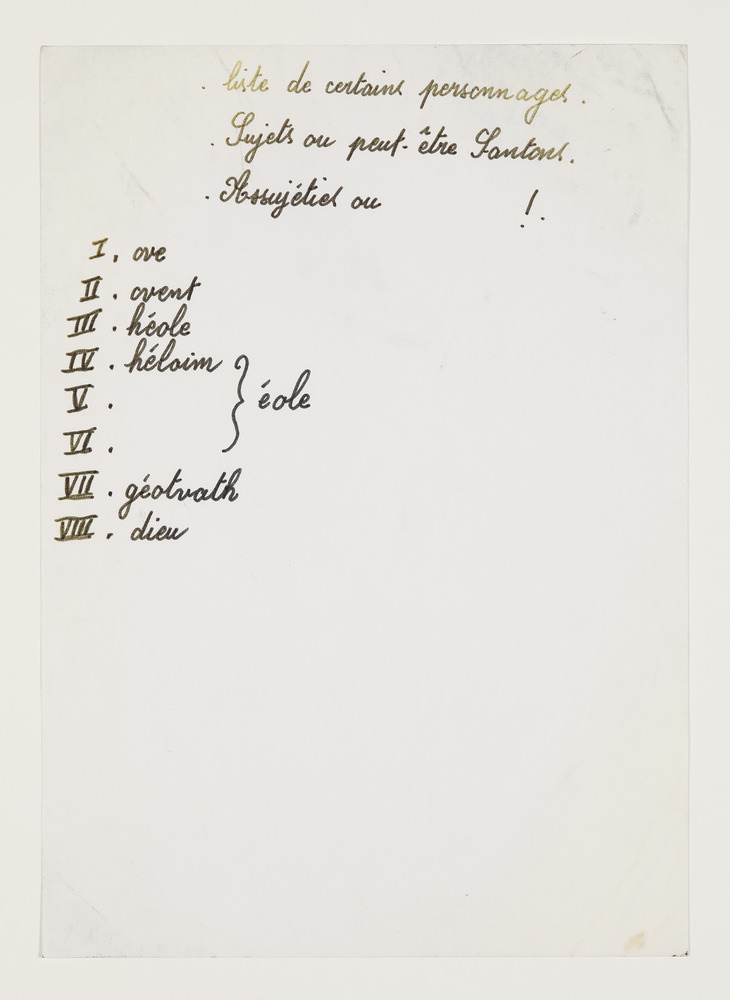 . liste de certains personnages.
. Sujets ou peut-être Santons.
. Assujéties ou !.
I. ove
II. ovent
III. héole
IV. héloim
V. } éole
VI.
VII. géotvath
VIII. dieu